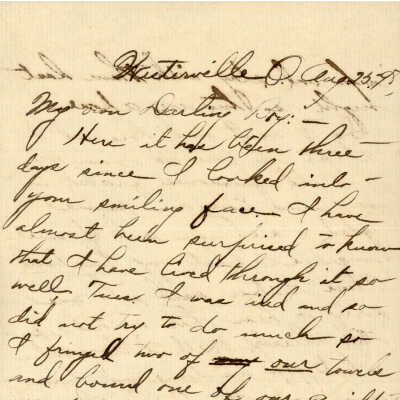 Westerville O. Aug 25, 98,
My own Darling boy:—
Here it has been three
days since I looked into
your smiling face. I have
almost been surprised to know
that I have lived through it so
well. Tues. I was tired and so
did not try to do much so
I fringed two of my our towels
and bound one of our